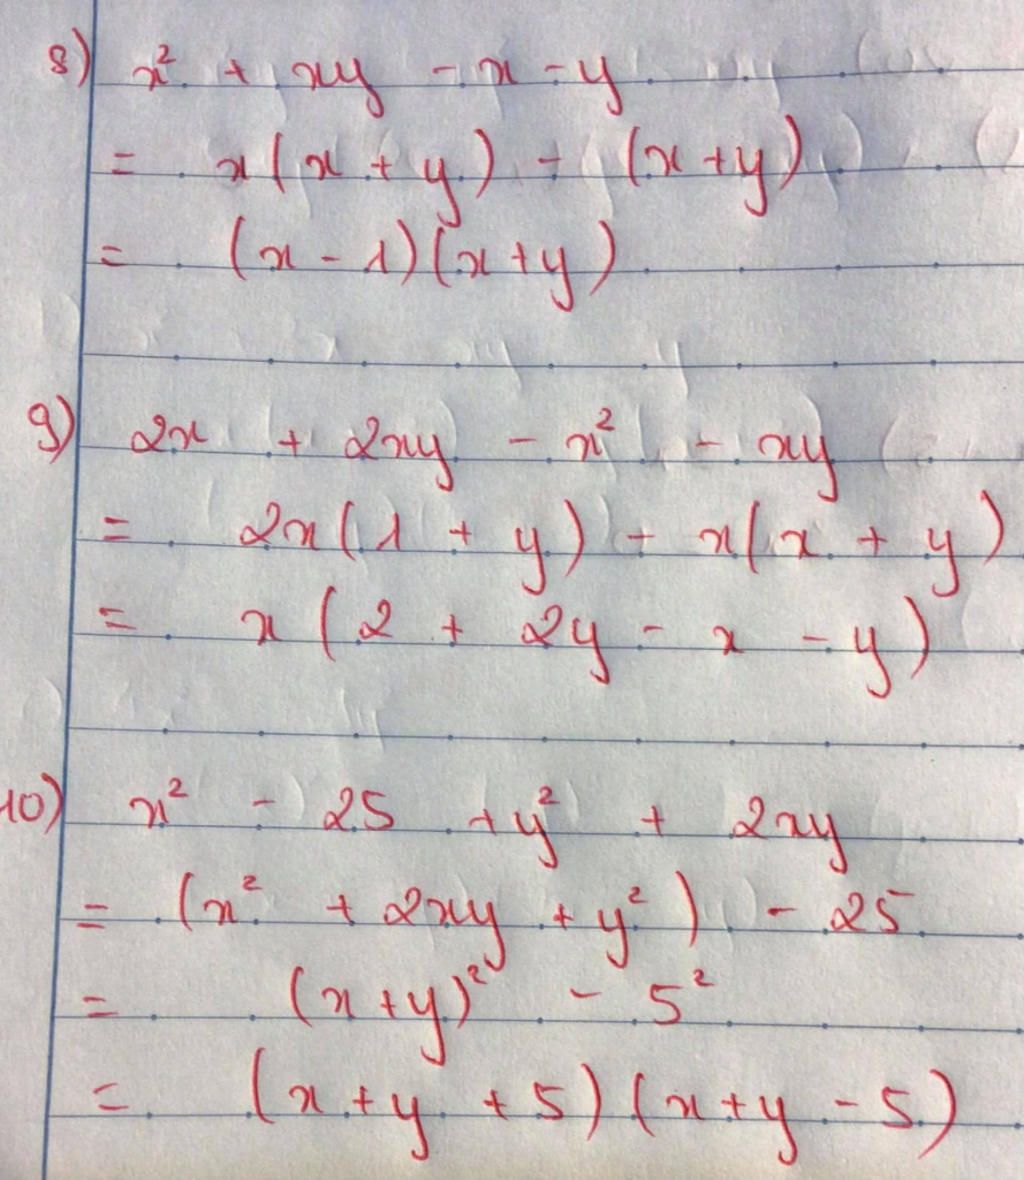 8) x² + xy - x - y
= x(x + y) - (x + y)
= (x - 1)(x + y)
9) 2x + 2xy - x² - xy
= 2x(1 + y) - x(x + y)
= x(2 + 2y - x - y)
10) x² - 25 + y² + 2xy
= (x² + 2xy + y²) - 25
= (x + y)² - 5²
= (x + y + 5)(x + y - 5)